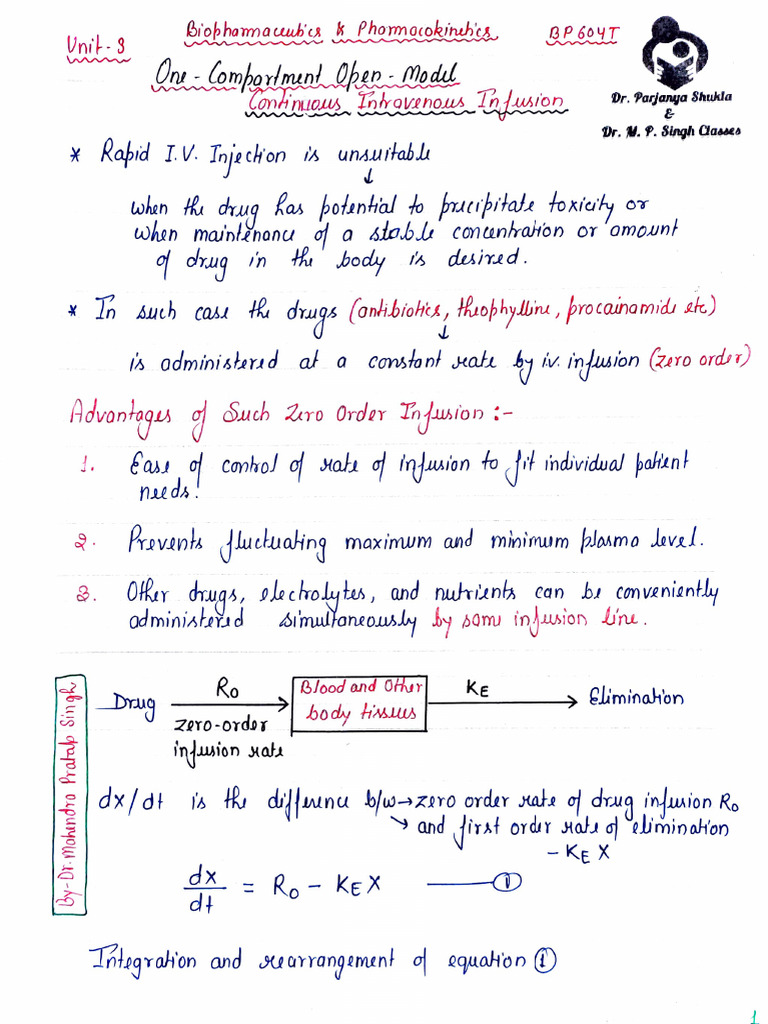 Unit-3
Biopharmaceutics & Pharmacokinetics
BP604T
One-Compartment Open-Model
Continuous Intravenous Infusion
Dr. Parjanya Shukla
&
Dr. M. P. Singh Classes
* Rapid I.V. Injection is unsuitable
↓
when the drug has potential to precipitate toxicity or
when maintenance of a stable concentration or amount
of drug in the body is desired.
* In such case the drugs (antibiotics, theophylline, procainamide etc)
↓
is administered at a constant rate by i.v. infusion (zero order)
Advantages of Such Zero Order Infusion :-
1. Ease of control of rate of infusion to fit individual patient
needs.
2. Prevents fluctuating maximum and minimum plasma level.
3. Other drugs, electrolytes, and nutrients can be conveniently
administered simultaneously by same infusion line.
By-Dr. Mahendra Pratap Singh
Drug R₀ → Blood and Other K_E → Elimination
zero-order body tissues
infusion rate
dx/dt is the difference b/w → zero order rate of drug infusion R₀
↘ and first order rate of elimination
- K_E X
dx/dt = R₀ - K_E X ——①
Integration and rearrangement of equation ①
1